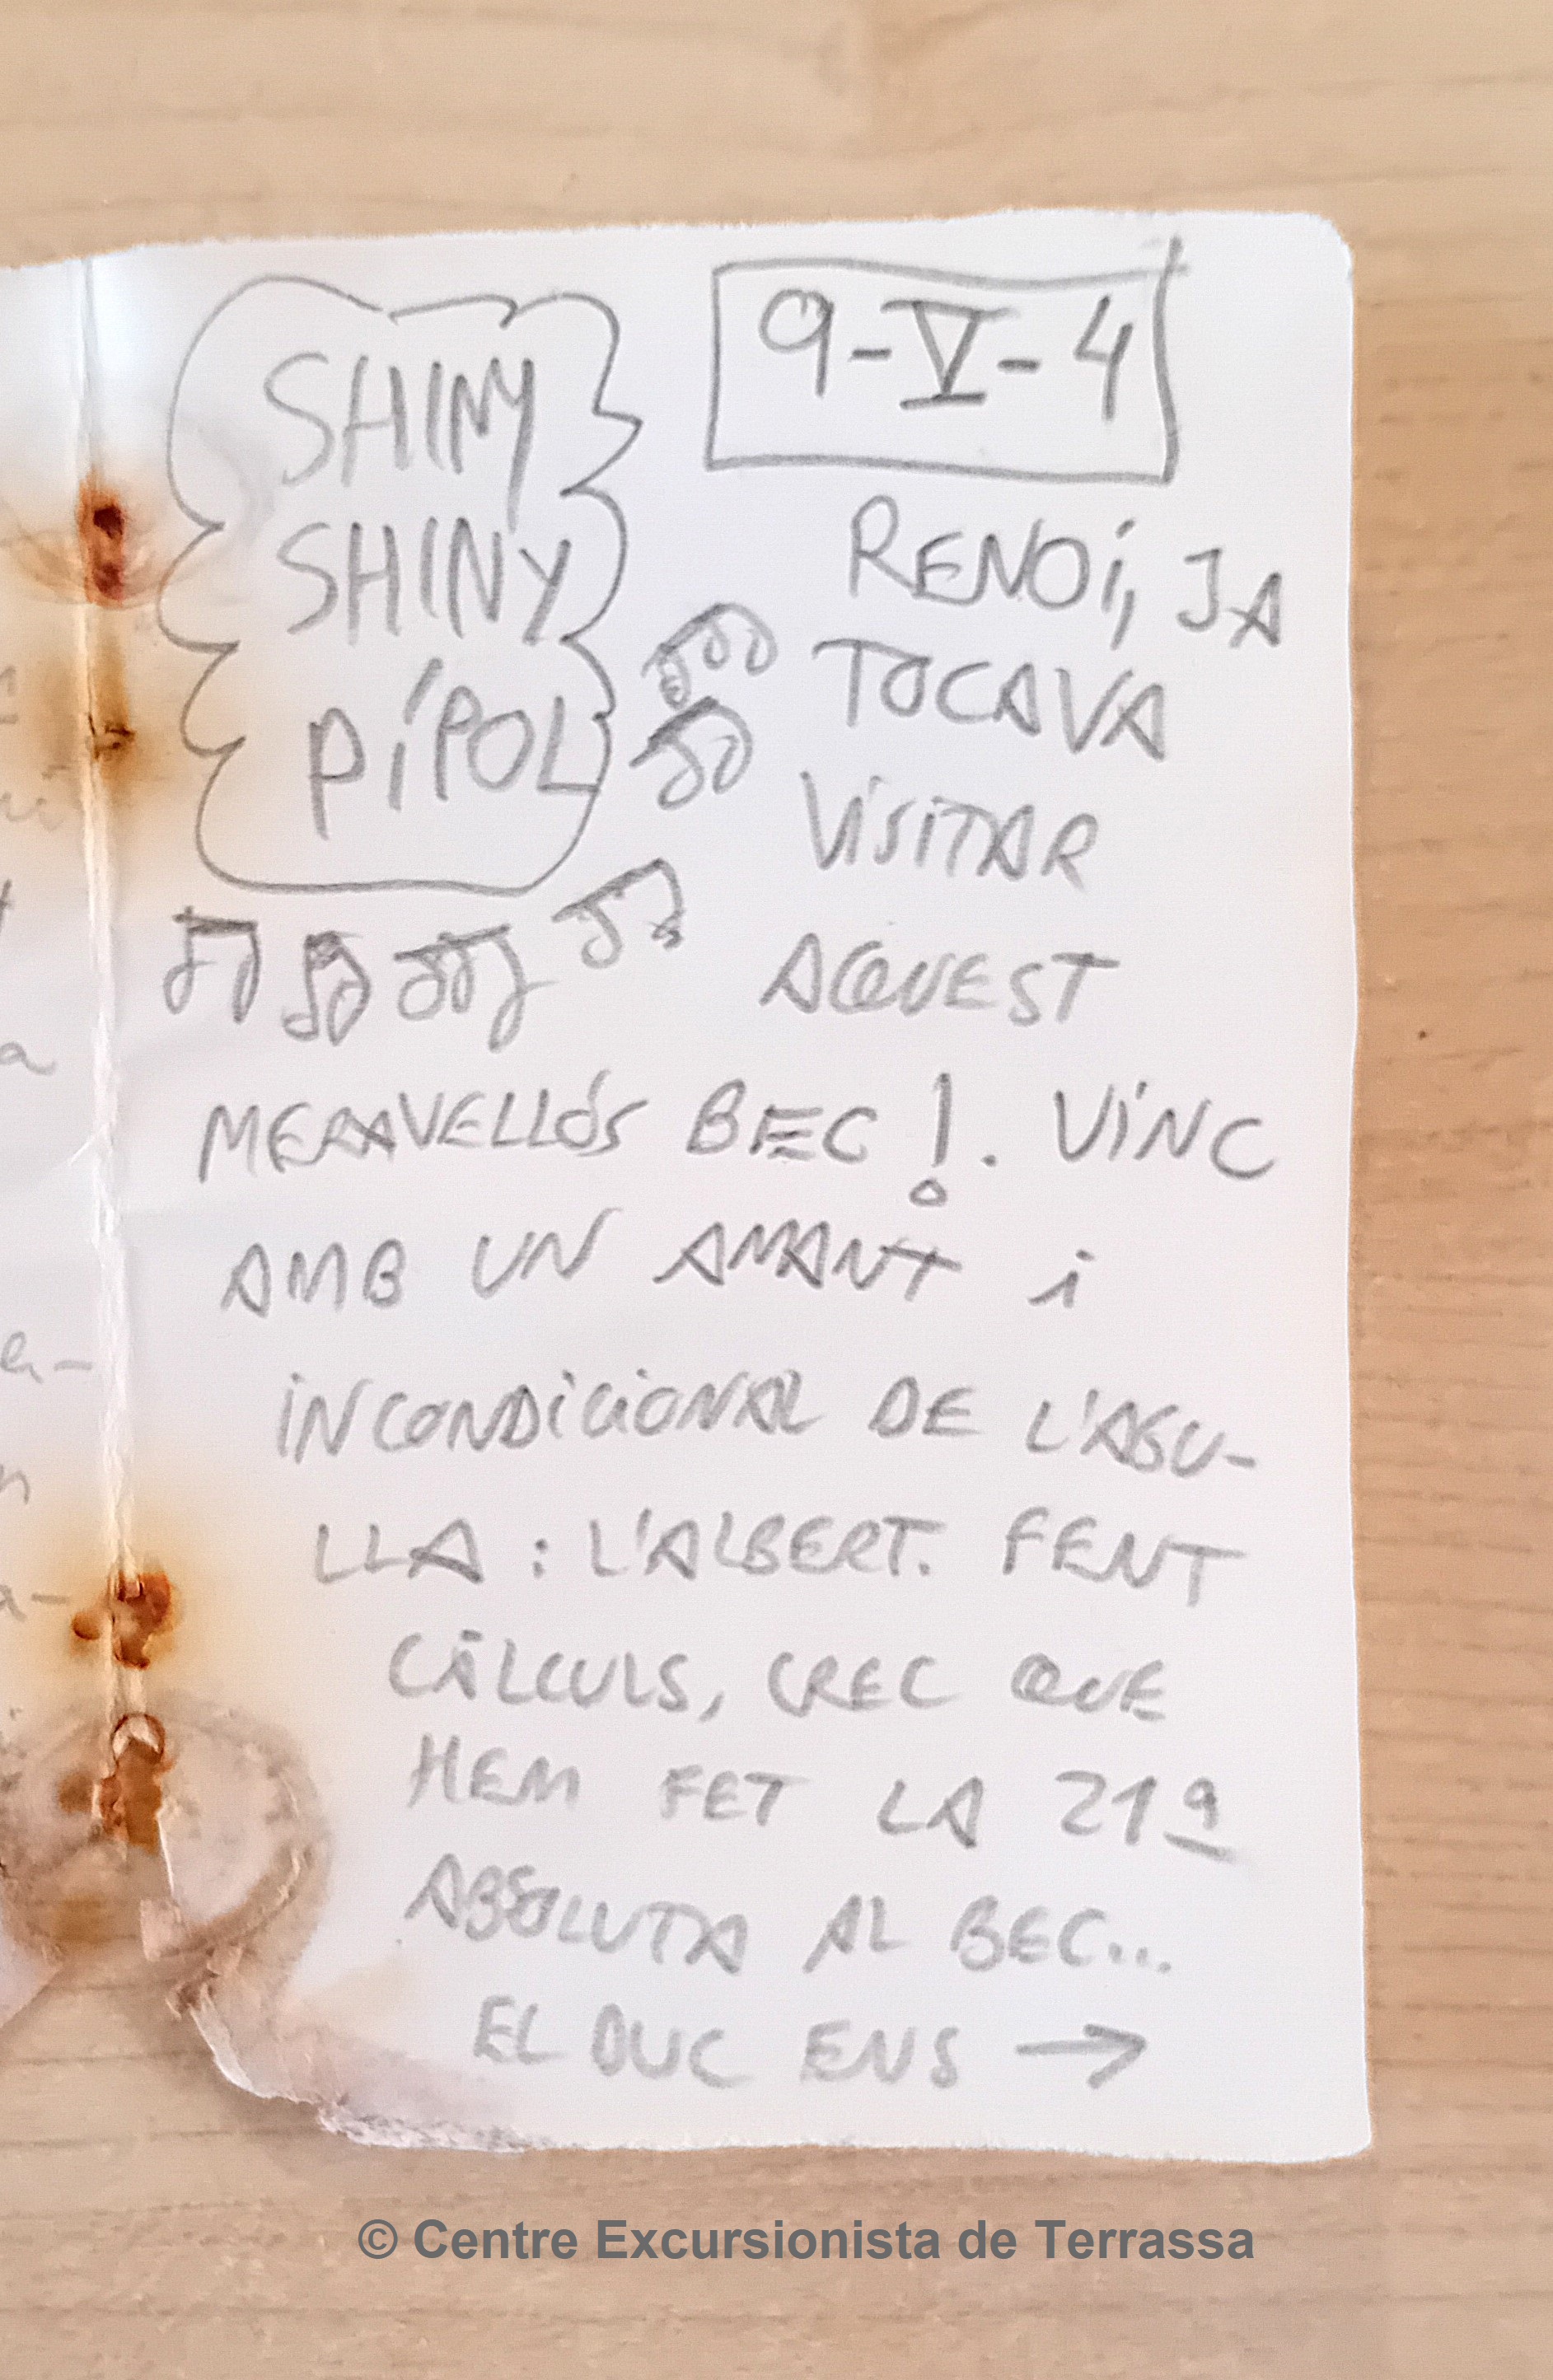 SHINY
SHINY
PÍPOL
9-V-4
RENOI, JA
TOCAVA
VISITAR
AQUEST
MERAVELLÓS BEC!. VINC
AMB UN AMANT i
INCONDICIONAL DE L'AGU-
LLA: L'ALBERT. FENT
CÀLCULS, CREC QUE
HEM FET LA 21ª
ABSOLUTA AL BEC...
EL DUC ENS →
© Centre Excursionista de Terrassa